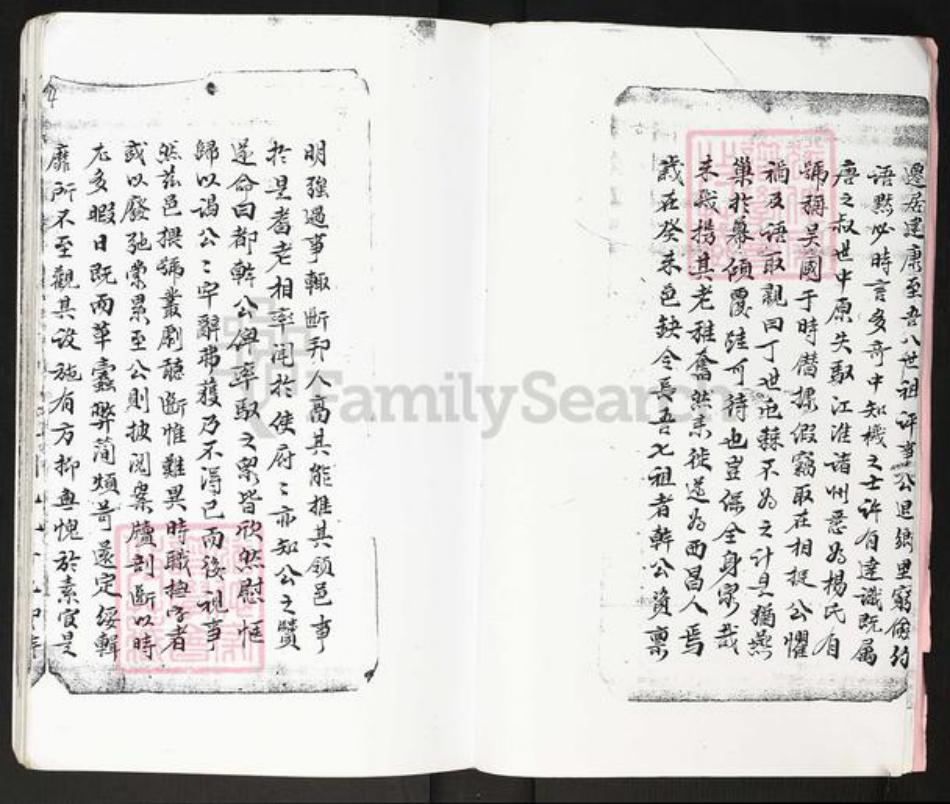 遷居建康至吾八世祖評事公退鄉里窮儉約
語默必時言多奇中知機之士許有達識既屬
唐之叔世中原失馭江淮諸州悉為楊氏有
號稱吳國于時僭據假竊取在相捉公懼
禍及語取親曰丁世危難不為之計是猶燕
巢於幕傾覆雖可待也豈保全身家哉
未幾攜其老稚奮然来徙遂為西昌人焉
歲在癸未邑缺令長吾七祖者幹公資稟
明強遇事輒斷邦人高其能推其領邑事
於是耆老相率聞於使府〻亦知公之賢
遂命曰都幹公俾率馭之衆皆欣然慰愜
歸以謁公〻牢辭弗獲乃不得已而後視事
然茲邑撰號叢劇聽斷惟難異時職撫字者
或以廢弛常累至公則披閱案牘剖斷以時
尤多暇日既而革蠹弊蕳煩苛遂定綏輯
靡所不至觀其設施有方抑無愧於素宦是
FamilySearch